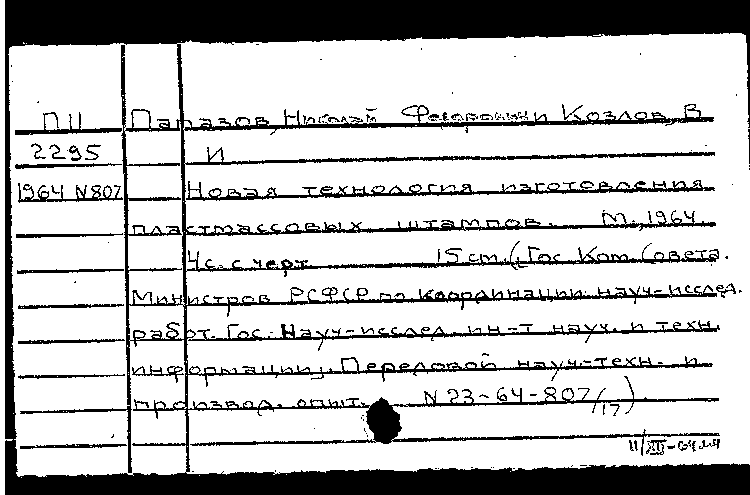 П11 Папазов, Николай Федорович и Козлов, В
2295 И
1964 N807 Новая технология изготовления
пластмассовых штампов. М., 1964.
4с. с черт 15 см. (Гос. Ком. Совета.
Министров РСФСР по координации науч-исслед.
работ. Гос. Науч-исслед. ин-т науч. и техн.
информации. Передовой науч-техн. и
производ. опыт. N 23-64-807/17).
11/XII-64